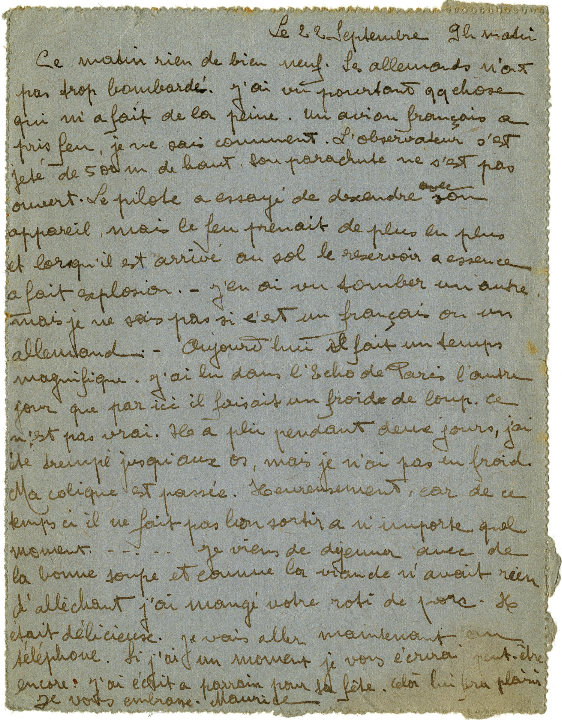 Le 22 Septembre 9h matin
Ce matin rien de bien neuf. Les allemands n'ont
pas trop bombardé. j'ai vu pourtant qq chose
qui m'a fait de la peine. Un avion français a
pris feu, je ne sais comment. L'observateur s'est
jeté de 500 m de haut. Son parachute ne s'est pas
ouvert. Le pilote a essayé de descendre avec son
appareil, mais le feu prenait de plus en plus
et lorsqu'il est arrivé au sol le reservoir a essence
a fait explosion. - j'en ai vu tomber un autre
mais je ne sais pas si c'est un français ou un
allemand. - Aujourd'hui il fait un temps
magnifique. j'ai lu dans l'Echo de Paris l'autre
jour que par ici il faisait un froid de loup. ce
n'est pas vrai. Il a plu pendant deux jours, j'ai
été trempé jusqu'aux os, mais je n'ai pas eu froid.
Ma colique est passée. Heureusement, car de ce
temps ci il ne fait pas bon sortir a n'importe quel
moment. - - - - - je viens de dejeuner avec de
la bonne soupe et comme la viande n'avait rien
d'alléchant j'ai mangé votre roti de porc. Il
etait délicieuse. je vais aller maintenant au
téléphone. Si j'ai un moment je vous écrirai peut-être
encore. j'ai écrit a parrain pour sa fête. Cà lui fera plaisir
Je vous embrasse. Maurice